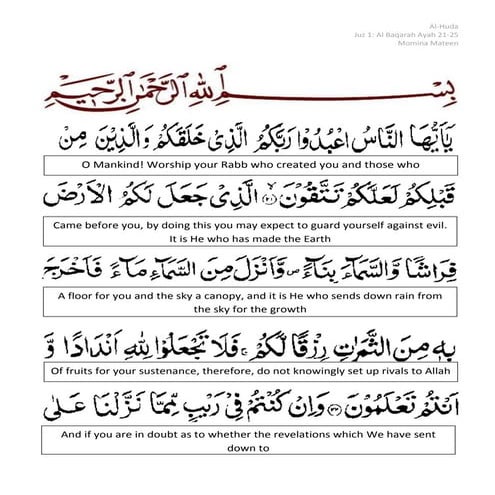 Al-Huda
Juz 1: Al Baqarah Ayah 21-25
Momina Mateen
بِسْمِ اللهِ الرَّحْمٰنِ الرَّحِيْمِ
يَاَيُّهَا النَّاسُ اعْبُدُوْا رَبَّكُمُ الَّذِىْ خَلَقَكُمْ وَالَّذِيْنَ مِنْ
O Mankind! Worship your Rabb who created you and those who
قَبْلِكُمْ لَعَلَّكُمْ تَتَّقُوْنَ ﴿٢١﴾ الَّذِىْ جَعَلَ لَكُمُ الْاَرْضَ
Came before you, by doing this you may expect to guard yourself against evil.
It is He who has made the Earth
فِرَاشًا وَّالسَّمَآءَ بِنَآءً ص وَّاَنْزَلَ مِنَ السَّمَآءِ مَآءً فَاَخْرَجَ
A floor for you and the sky a canopy, and it is He who sends down rain from
the sky for the growth
بِهٖ مِنَ الثَّمَرٰتِ رِزْقًا لَّكُمْ ج فَلَا تَجْعَلُوْا لِلّٰهِ اَنْدَادًا وَّ
Of fruits for your sustenance, therefore, do not knowingly set up rivals to Allah
اَنْتُمْ تَعْلَمُوْنَ ﴿٢٢﴾ وَاِنْ كُنْتُمْ فِىْ رَيْبٍ مِّمَّا نَزَّلْنَا عَلٰى
And if you are in doubt as to whether the revelations which We have sent
down to